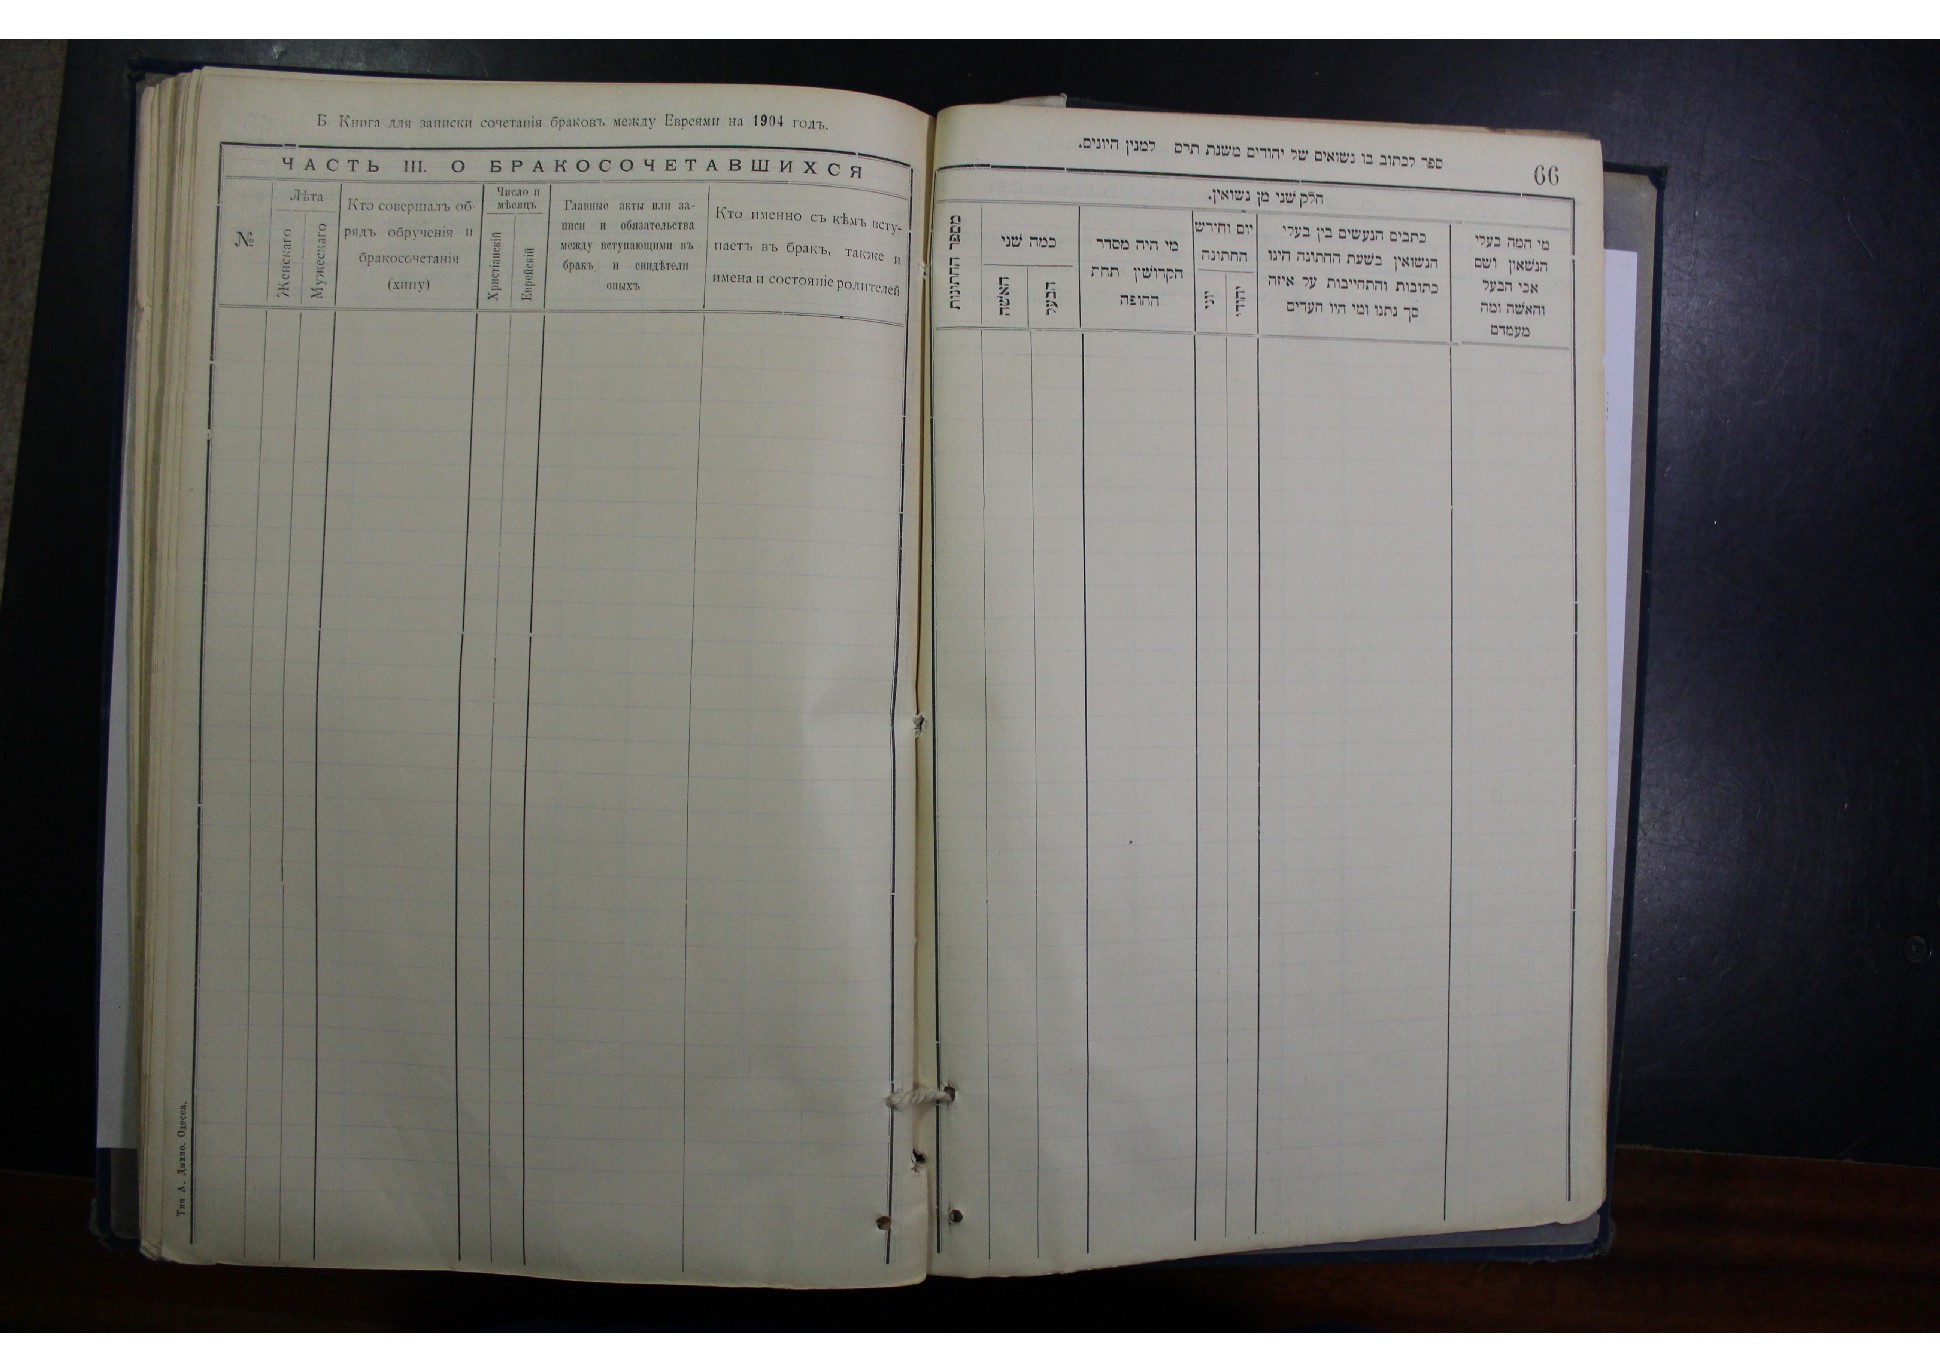 Б. Книга для записки сочетанія браковъ между Евреями на 1904 годъ.
ЧАСТЬ III. О БРАКОСОЧЕТАВШИХСЯ
№
Лѣта
Женскаго
Мужескаго
Кто совершалъ об-
рядъ обрученія и
бракосочетанія
(хипу)
Число и
мѣсяцъ
Христіанскій
Еврейскій
Главные акты или за-
писи и обязательства
между вступающими въ
бракъ и свидѣтели
оныхъ
Кто именно съ кѣмъ всту-
паетъ въ бракъ, также и
имена и состояніе родителей
Тип А. Дыхно. Одесса.
ספר לכתוב בו נשואים של יהודים משנת תרס למנין היונים.
66
חלק שני מן נשואין.
מספר החתונות
כמה שני
האשה
הבעל
מי היה מסדר
הקדושין תחת
החופה
יום וחידש
החתונה
יוני
יהודי
כתבים הנעשים בין בעלי
הנשואין בשעת החתונה הינו
כתובות והתחייבות על איזה
סך נתנו ומי היו העדים
מי המה בעלי
הנשאון ושם
אבי הבעל
והאשה ומה
מעמדם